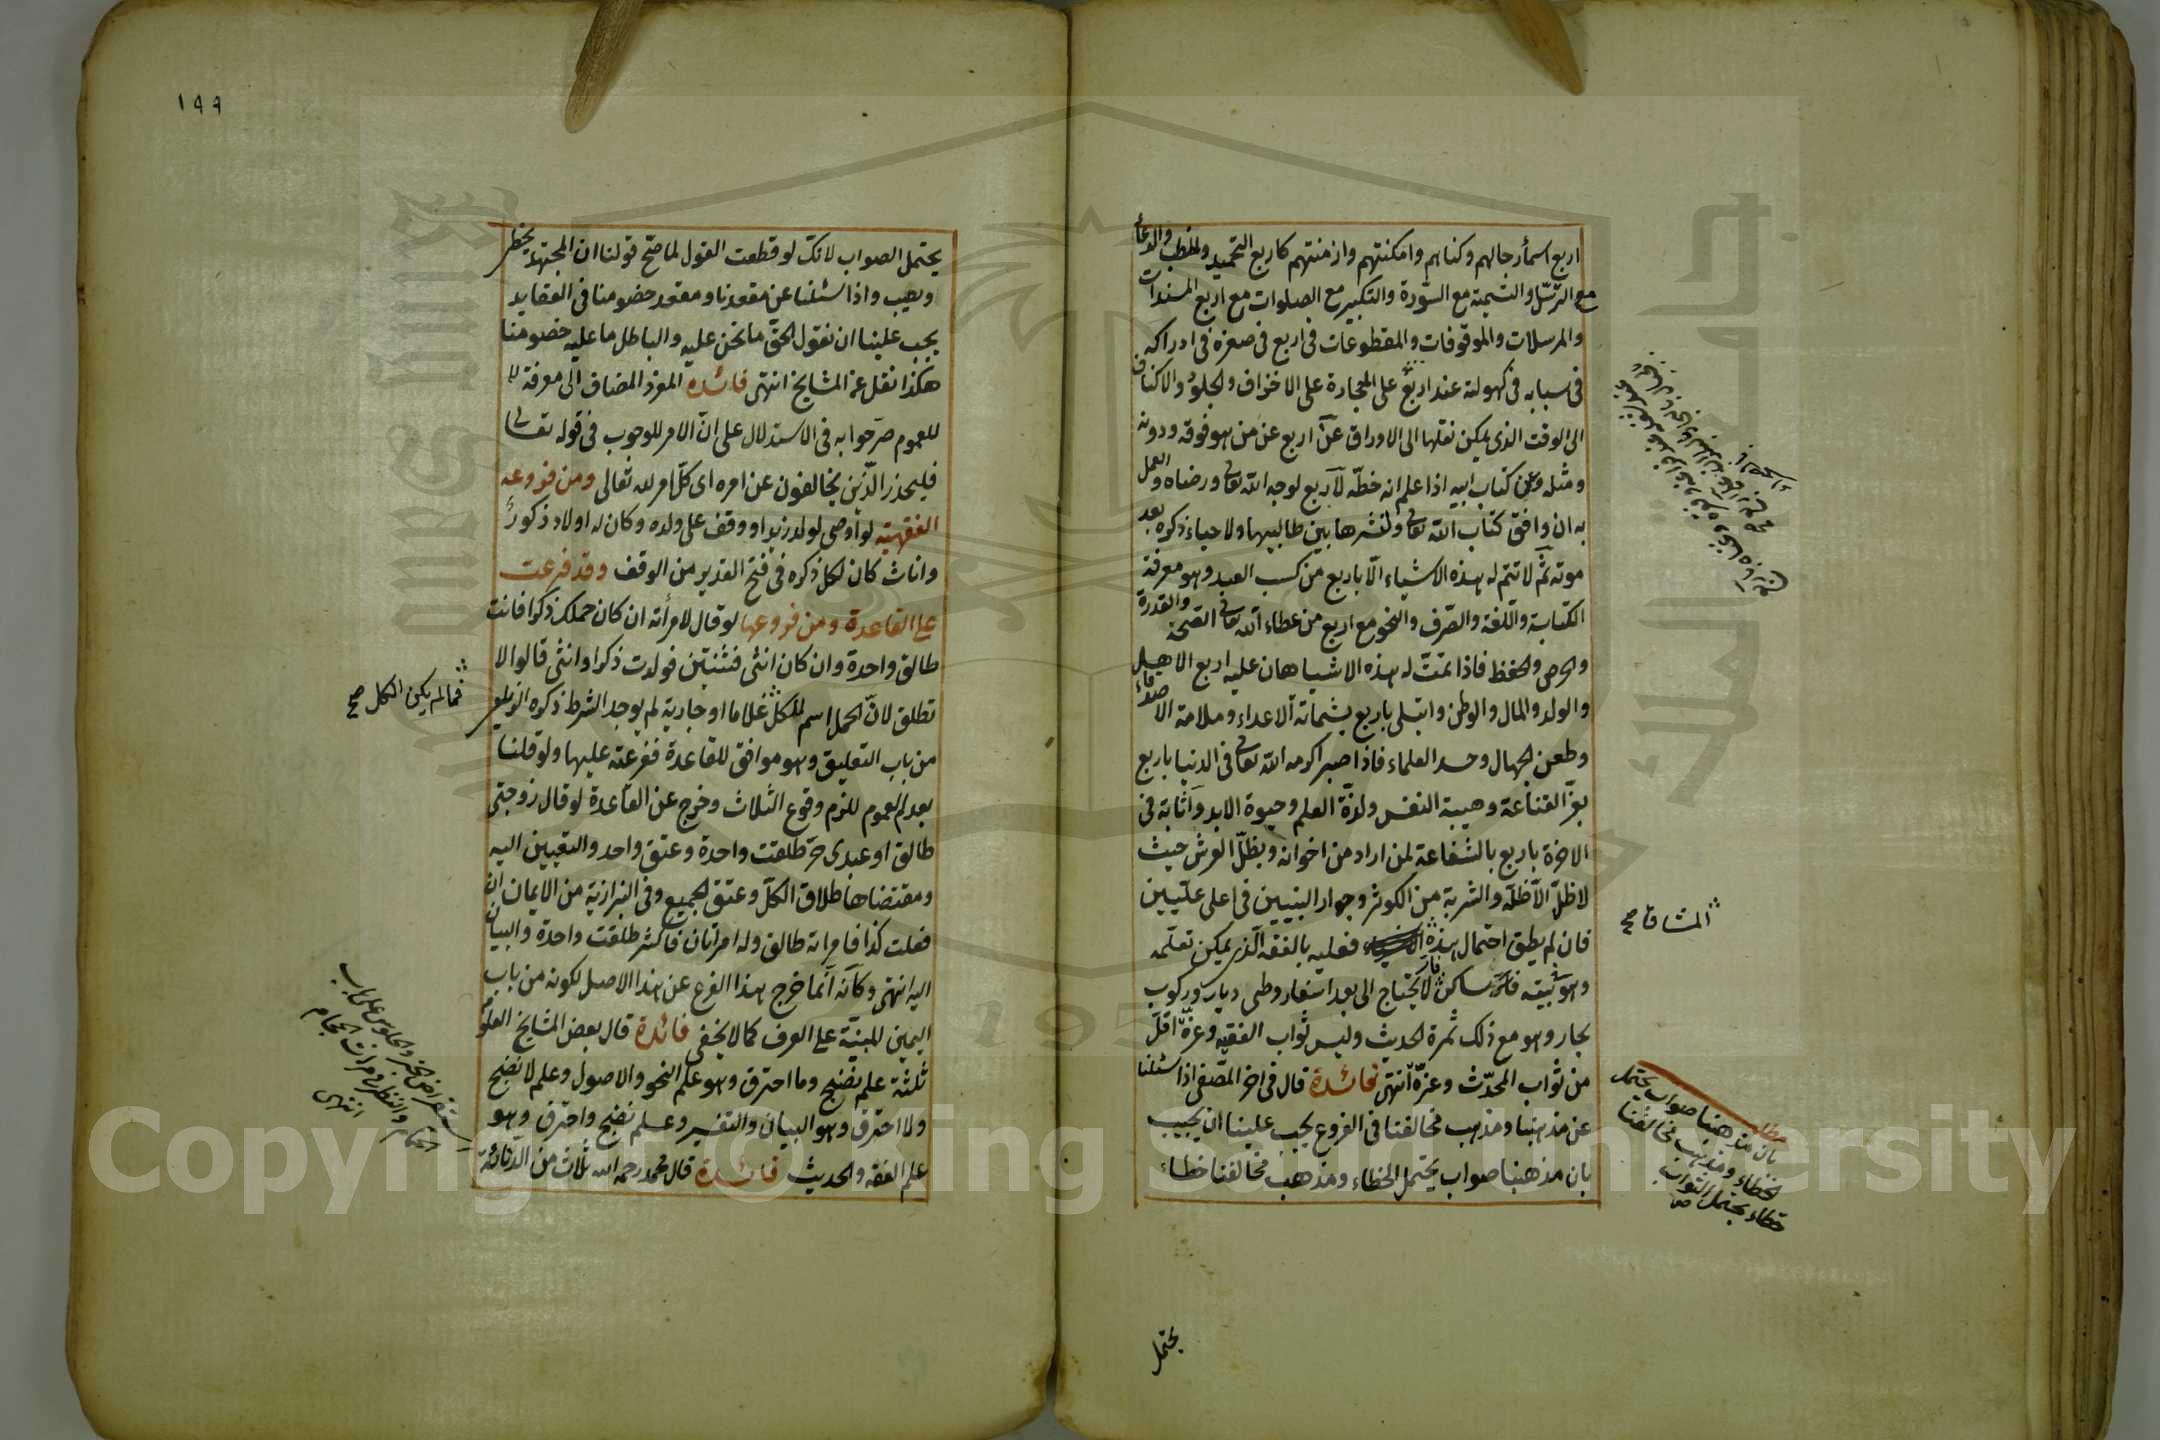 اربع اسمأ رجالهم وكناهم وامكنتهم وازمنتهم كاربع التحميد والخطب والدعأ
مع الترسّل والتسمية مع السّورة والتكبير مع الصلوات مع اربع المسندات
والمرسلات والموقوفات والمقطوعات فى اربع فى صغره فى ادراكه
فى سبابه فى كهولته عند اربع على الحجارة على الاخزاف والجلود والاكتاف
الى الوقت الذى يمكن نقلها الى الاوراق عن اربع عن من هو فوقه ودونه
ومثله وعن كتاب ابيه اذا علم انه خطّه لاربع لوجه الله تعالى ورضاه والعمل
به ان وافق كتاب الله تعالى ونشرها بين طالبيها ولاحياء ذكره بعد
موته ثم لا تتم له هذه الاشياء الّا باربع من كسب العبد وهو معرفة
الكتابة واللغة والصّرف والنحو مع اربع من عطاء الله تعالى الصّحة والقدرة
والحرص والحفظ فاذا تمّت له هذه الاشيا هان عليه اربع الاهل
والولد والمال والوطن وابتلى باربع بشماتة الاعداء وملامة الاصدقاء
وطعن الجهال وحسد العلماء فاذا صبر اكرمه الله تعالى فى الدنيا باربع
بعزّ القناعة وهيبة النفس ولذّة العلم وحيوة الابد واثابه فى
الاخرة باربع بالشفاعة لمن اراد من اخوانه وبظلّ العرش حيث
لا ظلّ الّا ظلّه والشربة من الكوثر وجوار النبيين فى اعلى علّيين
فان لم يطق احتمال هذه فعليه بالفقه الّذى يمكن تعلّمه
وهو فى بيته قارّ ساكن لا يحتاج الى بعد اسفار وطى ديار وركوب
بحار وهو مع ذلك ثمرة الحديث وليس ثواب الفقيه وعزّه اقلّ
من ثواب المحدّث وعزّه انتهى فائدة قال فى اخر المصّفى اذا سئلنا
عن مذهبنا ومذهب مخالفنا فى الفروع يجب علينا ان يجيب
بان مذهبنا صواب يحتمل الخطاء ومذهب مخالفنا خطاء
المشاق صح
بان مذهبنا صواب يحتمل
الخطاء ومذهب مخالفنا
خطاء يحتمل الثواب
يحتمل
١٩٩
يحتمل الصواب لانّك لو قطعت القول لما صّح قولنا ان المجتهد يخطر
ويصيب واذا سئلنا عن معتقدنا ومعتقد خصومنا فى العقايد
يجب علينا ان نقول الحقّ ما نحن عليه والباطل ما عليه خصومنا
هكذا نقل عن المشايخ انتهى فائدة المفرد المضاف الى معرفة
للعموم صرّحوا به فى الاستدلال على انّ الامر للوجوب فى قوله تعالى
فليحذر الّذين يخالفون عن امره اى كلّ امر لله تعالى ومن فروعه
الفقهية لو اوصى لولد زيد او وقف على ولده وكان له اولاد ذكور
واناث كان لكل ذكره فى فتح القدير من الوقف وقد فرعت
على القاعدة ومن فروعها لو قال لامرأته ان كان حملك ذكرا فانت
طالق واحدة وان كان انثى فثنتين فولدت ذكرا وانثى قالوا لا
تطلق لانّ الحمل اسم للكل غلاما او جارية لم يوجد الشرط ذكره الزيلعى
من باب التعليق وهو موافق للقاعدة ففرعته عليها ولو قلنا
بعدم العموم للزم وقوع الثلاث وخرج عن القاعدة لو قال زوجتى
طالق او عبدى حرّ طلقت واحدة وعتق واحد والتعيين اليه
ومقتضاها طلاق الكلّ وعتق الجميع وفى البزازية من الايمان ان
فعلت كذا فامراته طالق وله امراتان فاكثر طلقت واحدة والبيان
اليه انتهى وكانّه انّما خرج هذا الفرع عن هذا الاصل لكونه من باب
اليمين المبنيّة على العرف كما لا يخفى فائدة قال بعض المشايخ العلوم
ثلثة علم نضج وما احترق وهو علم النحو والاصول وعلم لا نضج
ولا احترق وهو البيان والتفسير وعلم نضج واحترق وهو
علم الفقه والحديث فائدة قال محمد رحمه الله ثلاث من الدّنائة
فما لم يكن الكل صح
استقراض الخبز والجلوس على باب
الحمام والنظر فى مرات الحجام
انتهى